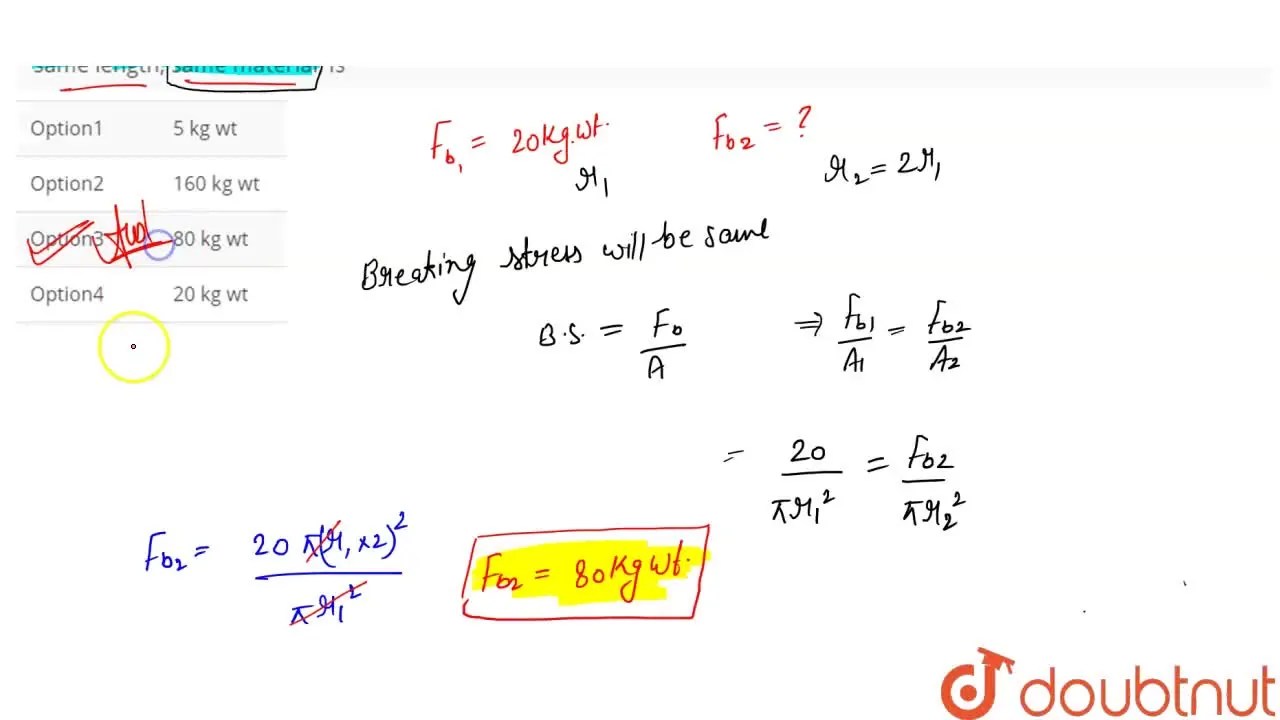 same length, same material is
Option1 5 kg wt
Option2 160 kg wt
Option3 80 kg wt
Option4 20 kg wt
F_b₁ = 20 Kg.wt.
r₁
F_b2 = ?
r₂ = 2r₁
Breaking stress will be same
B.S. = F_b / A
⇒ F_b1 / A₁ = F_b2 / A₂
= 20 / πr₁² = F_b2 / πr₂²
F_b₂ = 20 π(r₁ × 2)² / πr₁²
F_b2 = 80 Kg Wt.
doubtnut